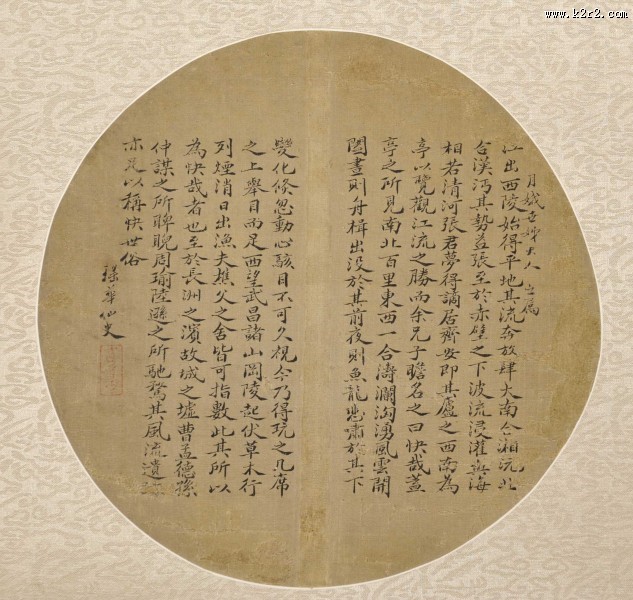 www.k2r2.com
月大人
江出西陵始得平地其流奔放肆大南合湘沅北
合漢沔其勢益張至於赤壁之下波流浸灌與海
相若清河張君夢得謫居齊安即其廬之西南為
亭以覽觀江流之勝而余兄子瞻名之曰快哉蓋
亭之所見南北百里東西一合濤瀾洶湧風雲開
闔晝則舟楫出没於其前夜則魚龍悲嘯於其下
變化倏忽動心駭目不可久視今乃得玩之几席
之上舉目而足西望武昌諸山岡陵起伏草木行
列煙消日出漁夫樵父之舍皆可指數此其所以
為快哉者也至於長洲之濱故城之墟曹孟德孫
仲謀之所睥睨周瑜陸遜之所馳騖其風流遺跡
亦足以稱快世俗
華仙史